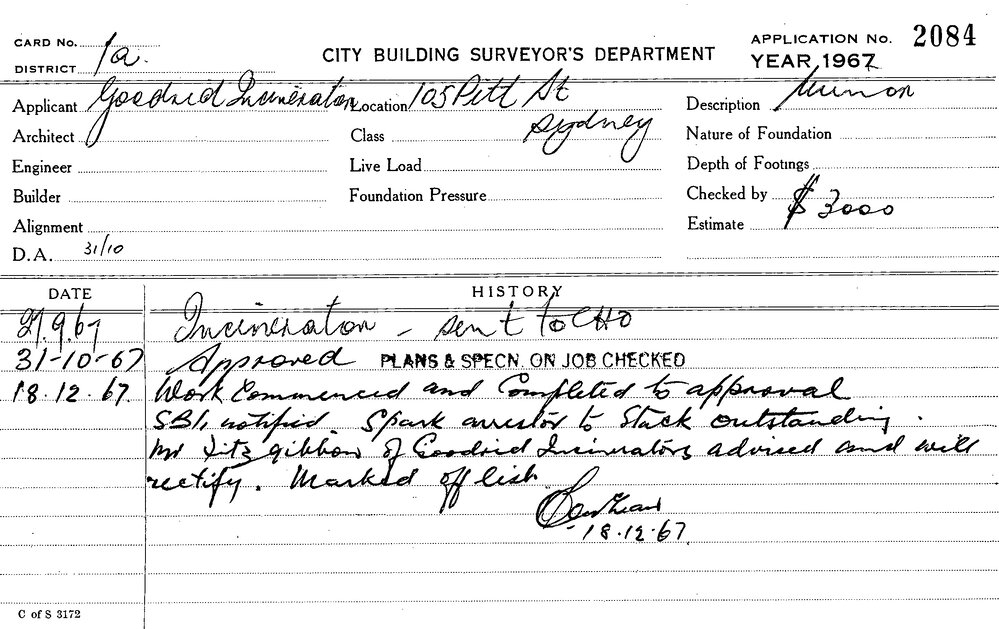 CARD No. 1a.
DISTRICT
CITY BUILDING SURVEYOR'S DEPARTMENT
APPLICATION No. 2084
YEAR, 1967
Applicant Goodrid Incinerator
Location 105 Pitt St
Sydney
Description Minor
Architect
Class
Nature of Foundation
Engineer
Live Load
Depth of Footings
Builder
Foundation Pressure
Checked by
Alignment
Estimate $3000
D.A. 31/10
DATE HISTORY
21.9.67 Incinerator - sent to CHO
31-10-67 Approved PLANS & SPECN. ON JOB CHECKED
18.12.67. Work Commenced and Completed to approval
SBI, notified. Spark arrestor to Stack outstanding.
Mr Fitzgibbon of Goodrid Incinerators advised and will
rectify. Marked off list.
18.12.67.
C of S 3172